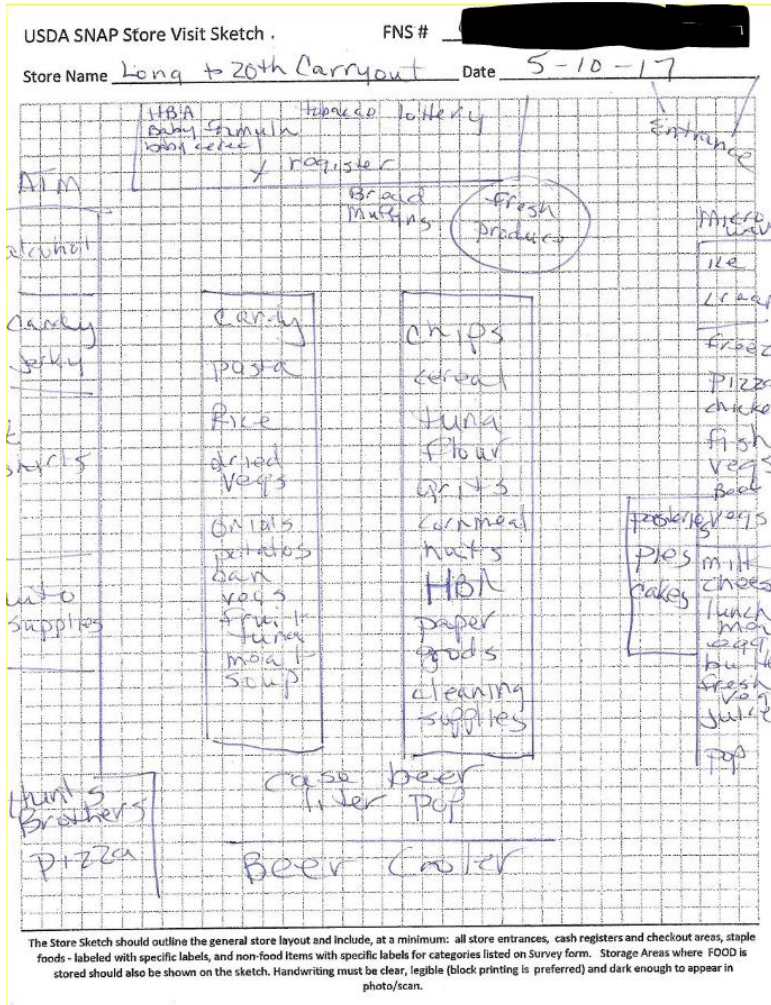 USDA SNAP Store Visit Sketch .
FNS #
Store Name Long + 20th Carryout Date 5-10-17
HBA
Baby formula
baby cereal
tobacco lottery
x register
Entrance
ATM
Bread
Muffins
Fresh
produce
alcohol
Candy
Jerky
t
shirts
auto
supplies
Candy
pasta
Rice
dried
vegs
potatos
can
vegs
fruit
tuna
meat
soup
chips
cereal
tuna
flour
grits
cornmeal
nuts
HBA
paper
goods
cleaning
supplies
Micro
wav
ice
crea
freez
pizza
chicke
fish
vegs
Beef
vegs
pies
cakes
milk
chees
lunch
mea
egg
butt
fresh
veg
juice
pop
Hunts
Brothers
Pizza
case beer
liter pop
Beer Cooler
The Store Sketch should outline the general store layout and include, at a minimum: all store entrances, cash registers and checkout areas, staple
foods - labeled with specific labels, and non-food items with specific labels for categories listed on Survey form. Storage Areas where FOOD is
stored should also be shown on the sketch. Handwriting must be clear, legible (block printing is preferred) and dark enough to appear in
photo/scan.